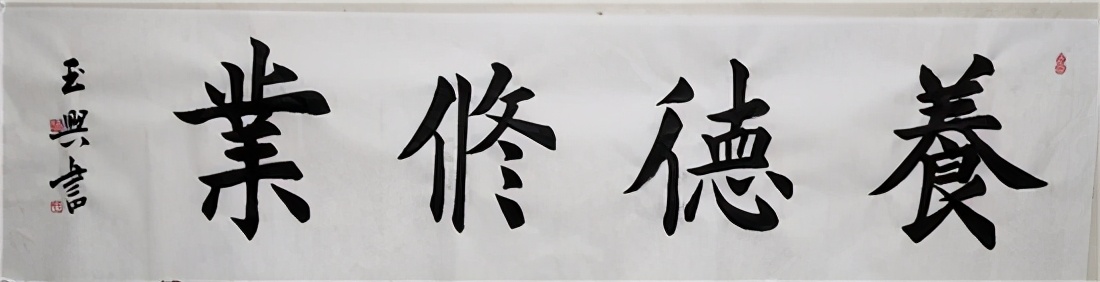 養德修業
玉興書